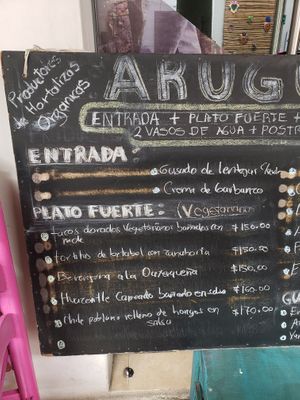 Productores
Hortalizas
Orgánicas
ARUGU
ENTRADA + PLATO FUERTE +
2 VASOS DE AGUA + POSTR
ENTRADA:
Guisado de lentejas
Crema de Garbanzo
PLATO FUERTE: (Vegetariano
Tacos dorados Vegetarianos bañados con $150.00
mole
Tortitas de con zanahoria $150.00
Berenjena a la Oaxaqueña $150.00
Huauzontle Capeado bañado en salsa $160.00
Chile poblano relleno de hongos en $170.00
salsa
GU
En
A